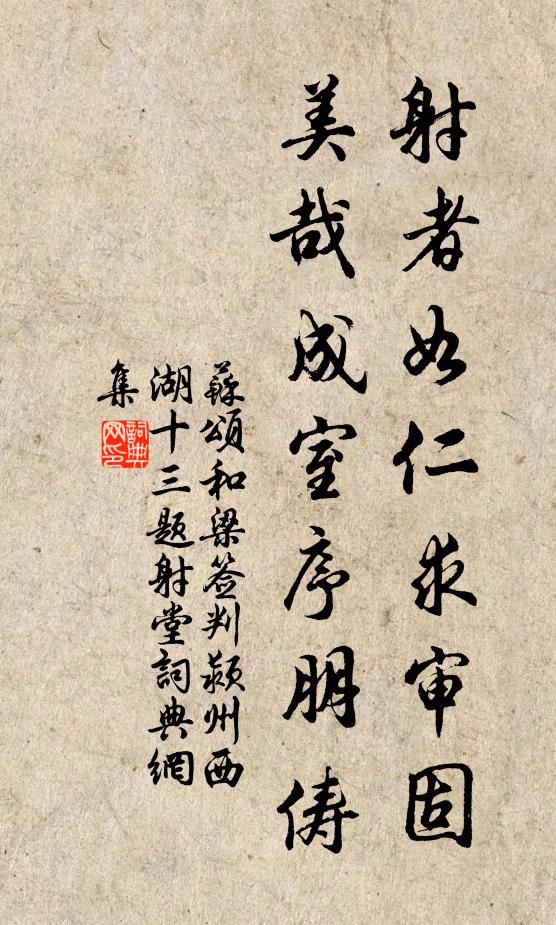 射者如仁求审固
美哉成室序朋俦
蘇頌和梁签判颍州西
湖十三题射堂詞典網
集
詞典
网印